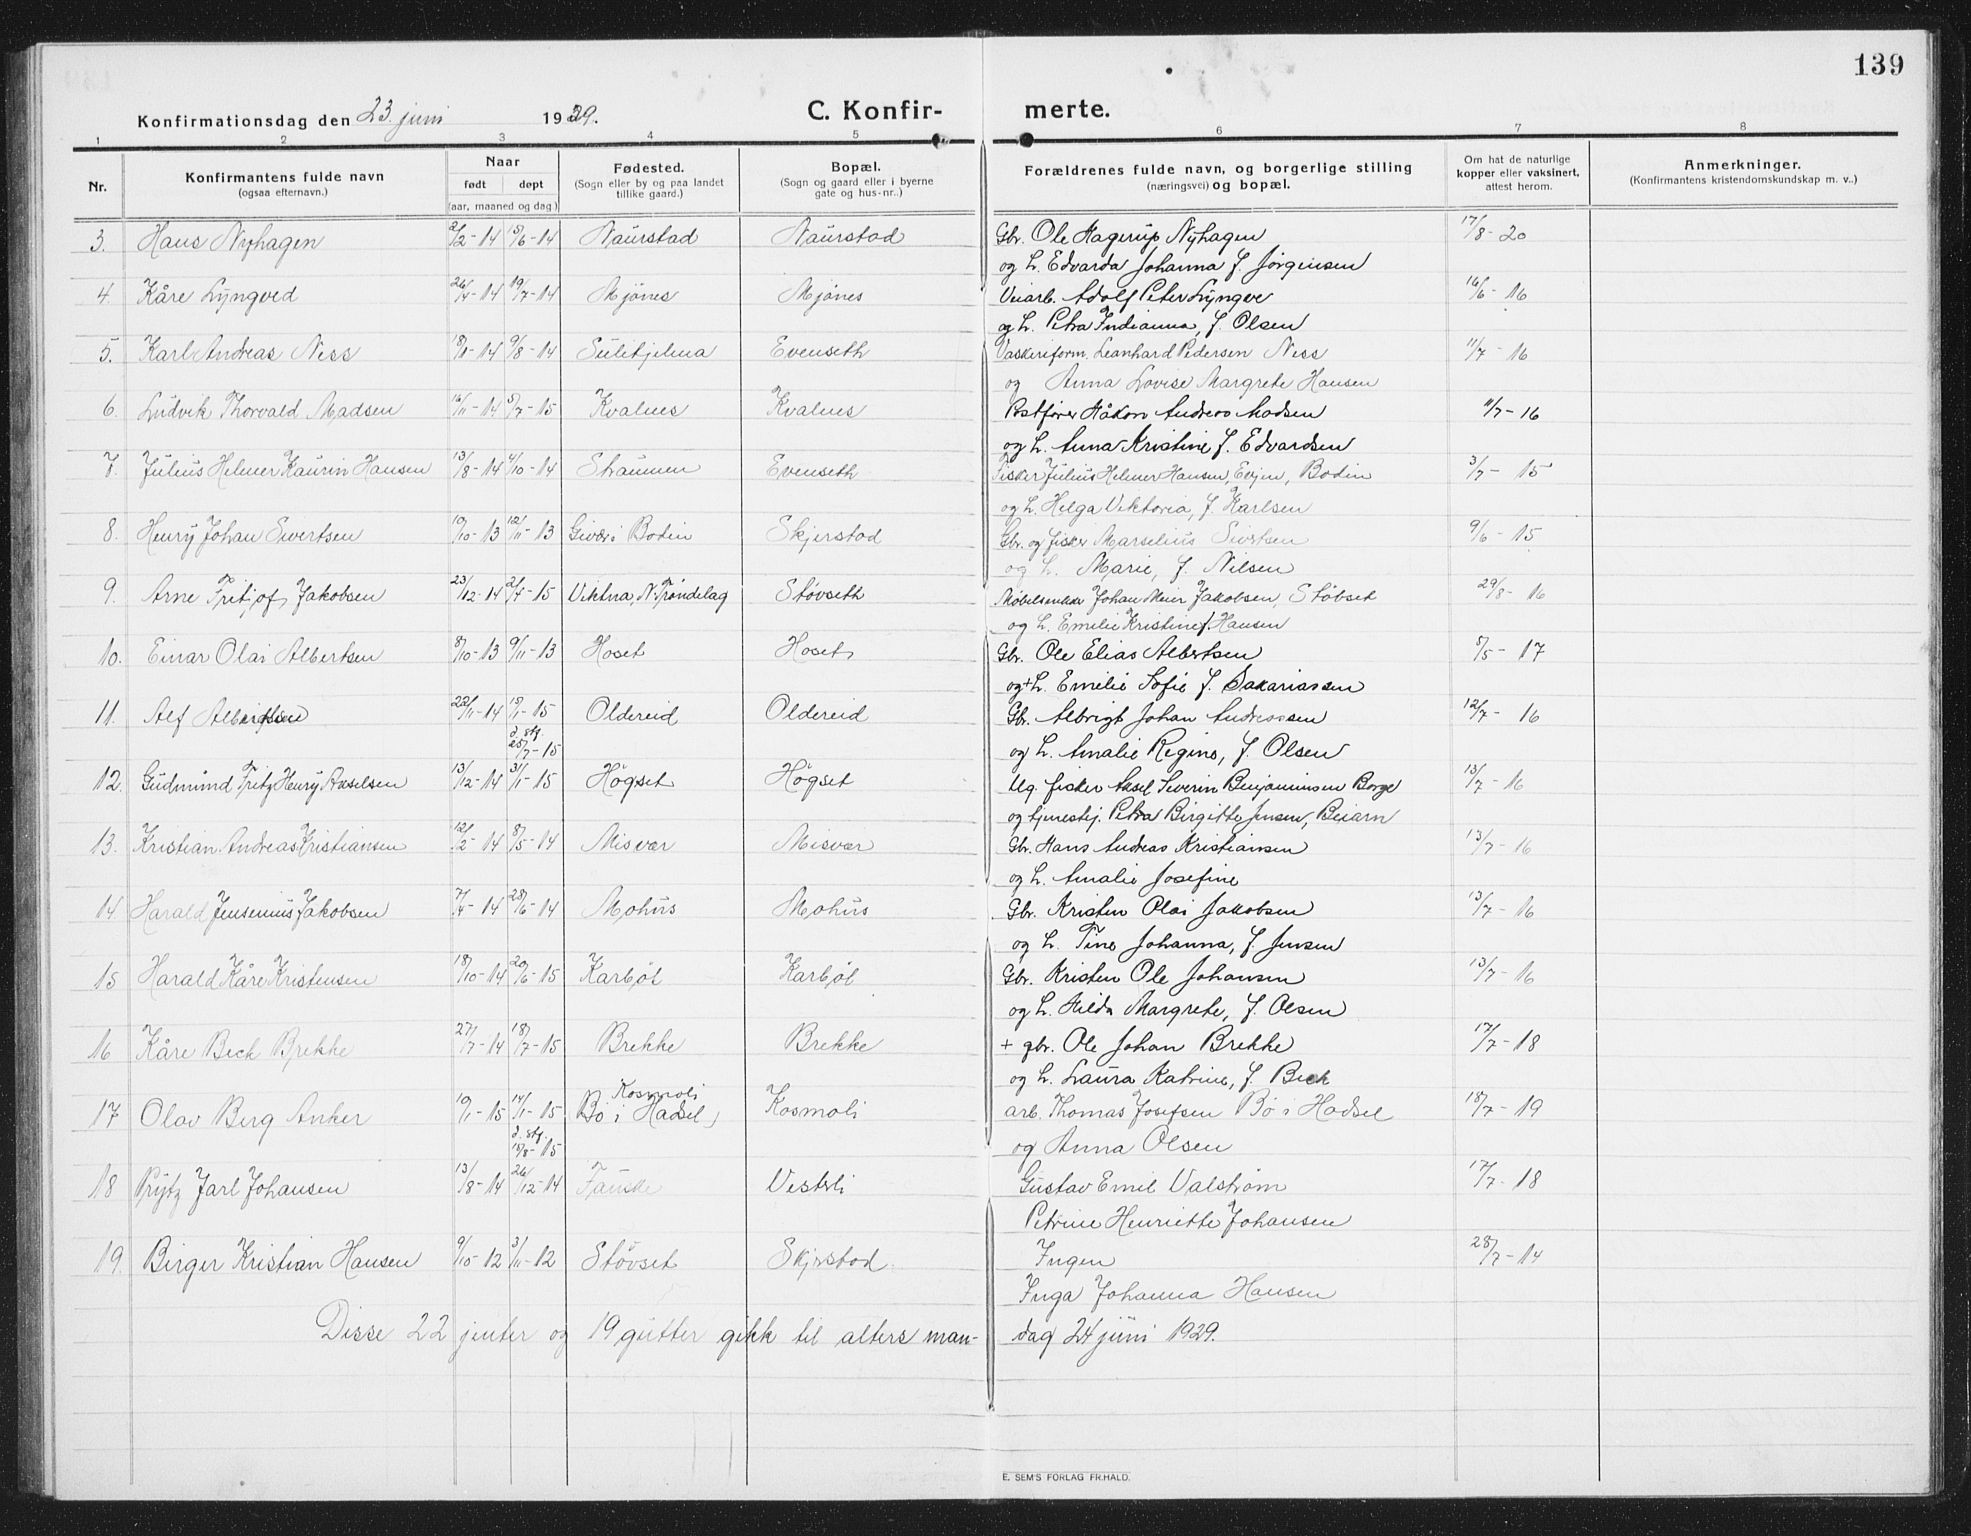 139
Konfirmationsdag den 23. juni 1929. C. Konfir- merte.
1 2 3 4 5 6 7 8
Nr. Konfirmantens fulde navn (ogsaa efternavn.) Naar født døpt (aar, maaned og dag) Fødested. (Sogn eller by og paa landet tillike gaard.) Bopæl. (Sogn og gaard eller i byerne gate og hus-nr..) Forældrenes fulde navn, og borgerlige stilling (næringsvei) og bopæl. Om hat de naturlige kopper eller vaksinert, attest herom. Anmerkninger. (Konfirmantens kristendomskundskap m. v..)
3. Hans Nyhagen 2/2-14 5/6-14 Naurstad Naurstad Gbr. Ole Hagerup Nyhagen 17/8-20
og h. Edvarda Johanna f. Jørgensen
4. Kåre Lyngved 26/4-14 19/7-14 Mjønes Mjønes Veiarb. Adolf Peter Lyngve 16/6-16
og h. Petra Indianna, f. Olsen
5. Karl Andreas Ness 18/1-14 9/8-14 Sulitjelma Evenseth Vaskeriform. Leanhard Pedersen Ness 11/7-16
og Anna Lovise Margrete Hansen
6. Ludvik Thorvald Madsen 16/11-14 5/7-15 Kvalnes Kvalnes Postfører Håkon Andreas Madsen 11/7-16
og h. Anna Kristine, f. Edvardsen
7. Julius Helmer Kaurin Hansen 13/8-14 4/10-14 Straumen Evenseth Fisker Julius Helmer Hansen, Evjen, Bodin 3/7-15
og h. Helga Viktoria, f. Karlsen
8. Henry Johan Sivertsen 19/10-13 12/11-13 Givær i Bodin Skjerstad Gbr. og fisker Marselius Sivertsen 9/6-15
og h. Marie, f. Nilsen
9. Arne Fritjof Jakobsen 23/12-14 2/4-15 Viktna, N. Trøndelag Støvseth Møbelsnekker Johan Meier Jakobsen, Støbset 29/8-16
og h. Emelie Kristine f. Hansen
10. Einar Olai Albertsen 8/10-13 9/11-13 Hoset Hoset Gbr. Ole Elias Albertsen 8/5-17
og + h. Emelie Sofie f. Sakariassen
11. Alf 22/11-14 19/1-15 Oldereid Oldereid Gbr. Albrigt Johan Andreassen 12/7-16
d. stf. 25/7-15
og h. Amalie Regine, f. Olsen
12. Gudmund Fritz Henry Akselsen 13/12-14 31/1-15 Høgset Høgset Ug. fisker Aksel Severin Benjaminsen Borge 13/7-16
og tjenestpj. Petra Birgitte Jensen, Beiarn
13. Kristian Andreas Kristiansen 12/2-14 8/5-14 Misvær Misvær Gbr. Hans Andreas Kristiansen 13/7-16
og h. Amalie Josefine
14 Harald Jensenius Jakobsen 7/4-14 28/6-14 Mohus Mohus Gbr. Kristen Olai Jakobsen 13/7-16
og h. Tine Johanna, f. Jensen
15 Harald Kåre Kristensen 18/10-14 20/6-15 Karbøl Karbøl Gbr. Kristen Ole Johansen 13/7-16
og h. Hilda Margrete, f. Olsen
16 Kåre Bech Brekke 27/7-14 18/7-15 Brekke Brekke + gbr. Ole Johan Brekke 17/7-18
og h. Laura Katrine, f. Bech
17 Olav Berg Anker 19/1-15 14/1-15 Kosmoli Bø i Hadsel Kosmoli arb. Thomas Josefsen Bø i Hadsel 18/7-19
d. stf. 15/8-15
og Anna Olsen
18 Prytz Jarl Johansen 13/8-14 26/12-14 Fauske Vesterli Gustav Emil Valstrøm 17/7-18
Petrine Henriette Johansen
19. Birger Kristian Hansen 9/10-12 3/11-12 Støvset Skjerstad. Ingen 28/7-14
Inga Johanna Hansen
Disse 22 jenter og 19 gutter gikk til alters man- dag 24 juni 1929.
E. SEM'S FORLAG FR.HALD.